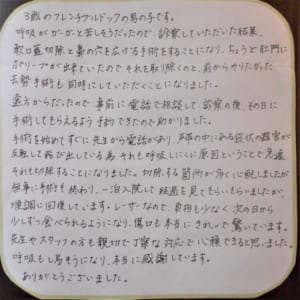 3歳のフレンチブルドックの男の子です。
呼吸がガーガーと苦しそうだったので、診察していただいた結果、
軟口蓋切除と鼻の穴を広げる手術をすることになり、ちょうど肛門に
ポリープが出来ていたので、それを取り除くのと、前からやりたかった
去勢手術も同時にしていただくことになりました。
遠方からだったので事前に電話で相談して、診察の後、その日に
手術してもらえるよう予約できたので助かりました。
手術を始めてすぐに先生から電話があり、声帯の中にある袋状の器官が
反転して飛び出している為、それも呼吸しにくい原因ということで急遽
それも切除することになりました。切除する箇所が多く心配しましたが
無事に手術も終わり、一泊入院して経過を見てもらいましたが、
順調に回復しています。レーザーなので、負担も少なく次の日から
少しずつ食べられるようになり、傷口も本当にきれいで驚いています。
先生やスタッフの方も親切で丁寧な対応で信頼できると思いました。
呼吸も楽そうになり、本当に感謝しています。
ありがとうございました。